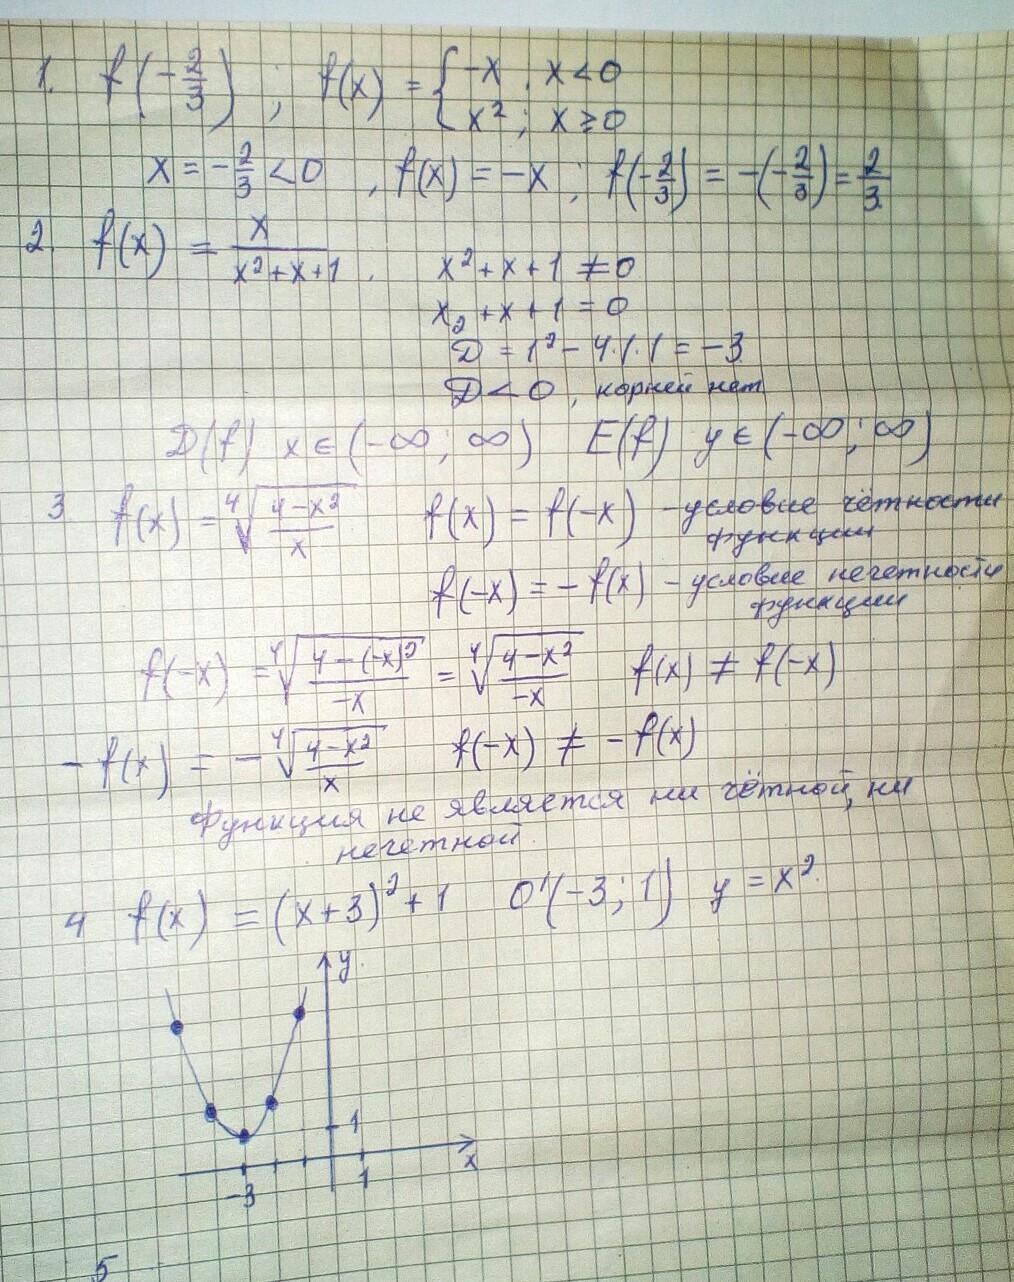 1. f(-2/3) ; f(x) = { -x , x < 0
x² ; x ≥ 0
x = -2/3 < 0 , f(x) = -x ; f(-2/3) = -(-2/3) = 2/3
2. f(x) = x/(x²+x+1) . x²+x+1 ≠ 0
x₂+x+1 = 0
D = 1² - 4·1·1 = -3
D < 0 , корней нет
D(f) x ∈ (-∞ ; ∞) E(f) y ∈ (-∞ ; ∞)
3 f(x) = ⁴√((4-x²)/x) f(x) = f(-x) - условие чётности
функции
f(-x) = - f(x) - условие нечетности
функции
f(-x) = ⁴√((4-(-x)²)/-x) = ⁴√((4-x²)/-x) f(x) ≠ f(-x)
- f(x) = - ⁴√((4-x²)/x) f(-x) ≠ - f(x)
Функция не является ни чётной, ни
нечетной.
4 f(x) = (x+3)² + 1 O'(-3; 1) y = x².
y
1
x
-3 1
5